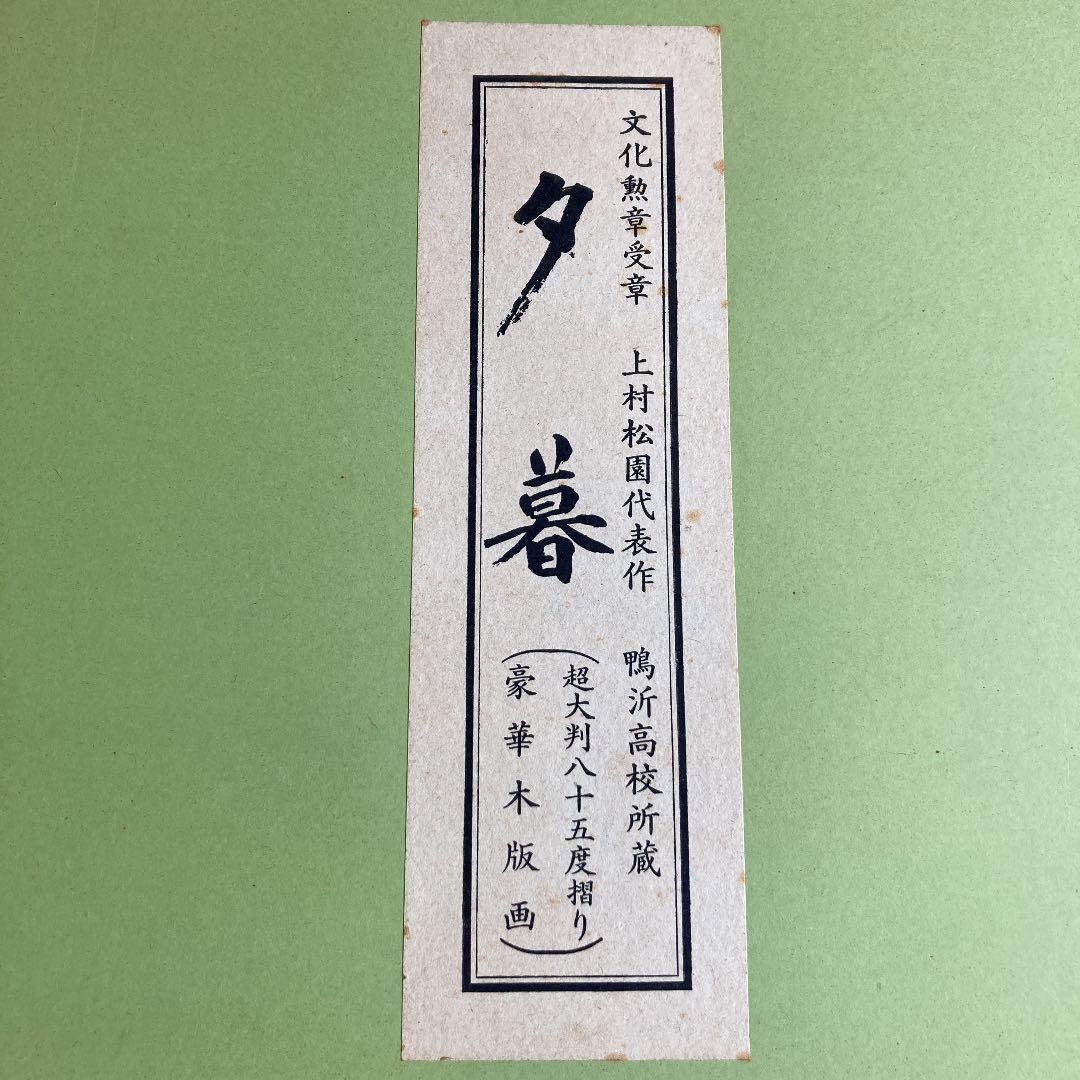 文化勲章受章　上村松園代表作　鴨沂高校所蔵
夕暮
（超大判八十五度摺り
豪華木版画）